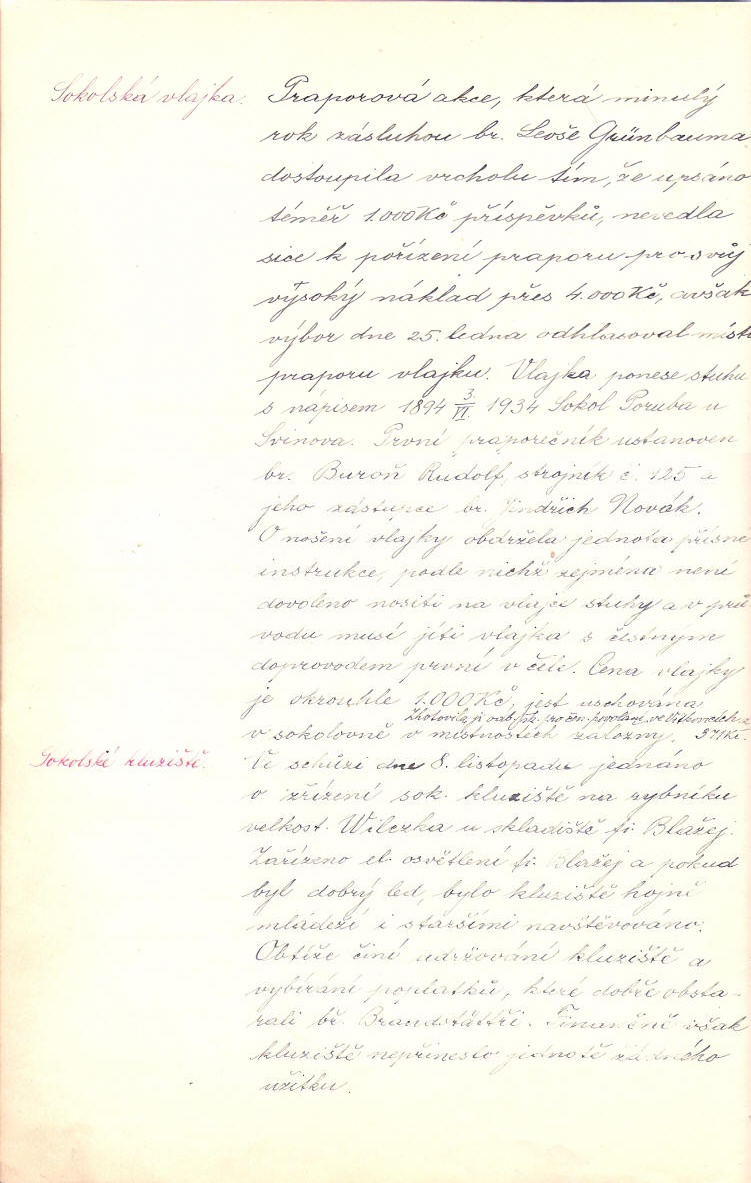 Sokolská vlajka.
Praporová akce, která minulý
rok zásluhou br. Leoše Grünbauma
dostoupila vrcholu tím, že upsáno
téměř 1.000 Kč příspěvků, nevedla
sice k pořízení praporu pro svůj
vysoký náklad přes 4.000 Kč, avšak
výbor dne 25. ledna odhlasoval místo
praporu vlajku. Vlajka ponese stuhu
s nápisem 1894 3/VI. 1934 Sokol Poruba u
Svinova. První praporečník ustanoven
br. Buroň Rudolf, strojník č. 125 a
jeho zástupce br. Jindřich Novák.
O nošení vlajky obdržela jednota přísné
instrukce, podle nichž zejména není
dovoleno nositi na vlajce stuhy a v prů
vodu musí jíti vlajka s čestným
doprovodem první v čele. Cena vlajky
je okrouhle 1.000 Kč, jest uschována
Zhotovila ji odb. šk. pro žen. povolání ve Vítkovicích z
v sokolovně v místnostech záložny. 371 Kč.
Sokolské kluziště.
Ve schůzi dne 8. listopadu jednáno
o zřízení sok. kluziště na rybníku
velkost. Wilczka u skladiště fi. Blažej.
Zařízeno el. osvětlení fi. Blažej a pokud
byl dobrý led, bylo kluziště hojně
mládeží i staršími navštěvováno.
Obtíže činí udržování kluziště a
vybírání poplatků, které dobře obsta-
rali bř. Brandstätři. Finančně však
kluziště nepřineslo jednotě žádného
užitku.